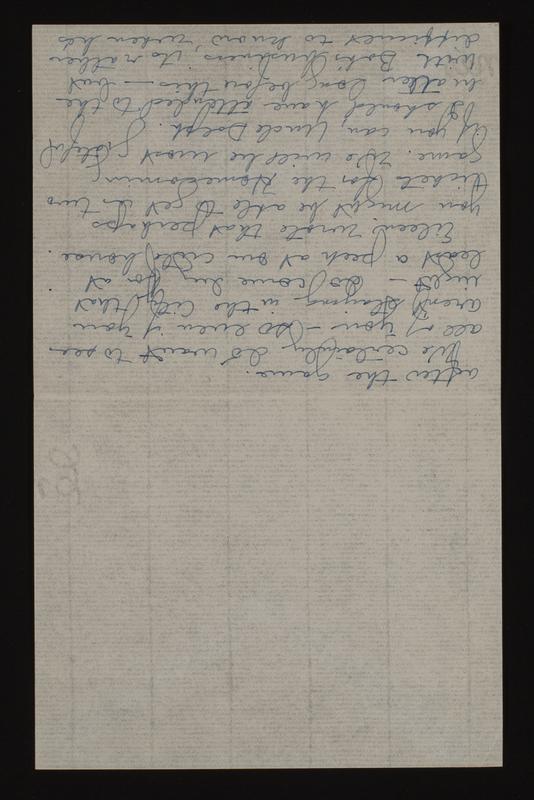 after the game.
We certainly do want to see
all of you - so even if you
aren't staying in the City that
night - do come by for at
least a peek at our little house.
Eileen wrote that perhaps
you might be able to get us two
tickets for the Homecoming
game. We will be most grateful
if you can Uncle Dolph.
I should have attended to the
matter long before this - but
with Bob's business, it's rather
difficult to know when he